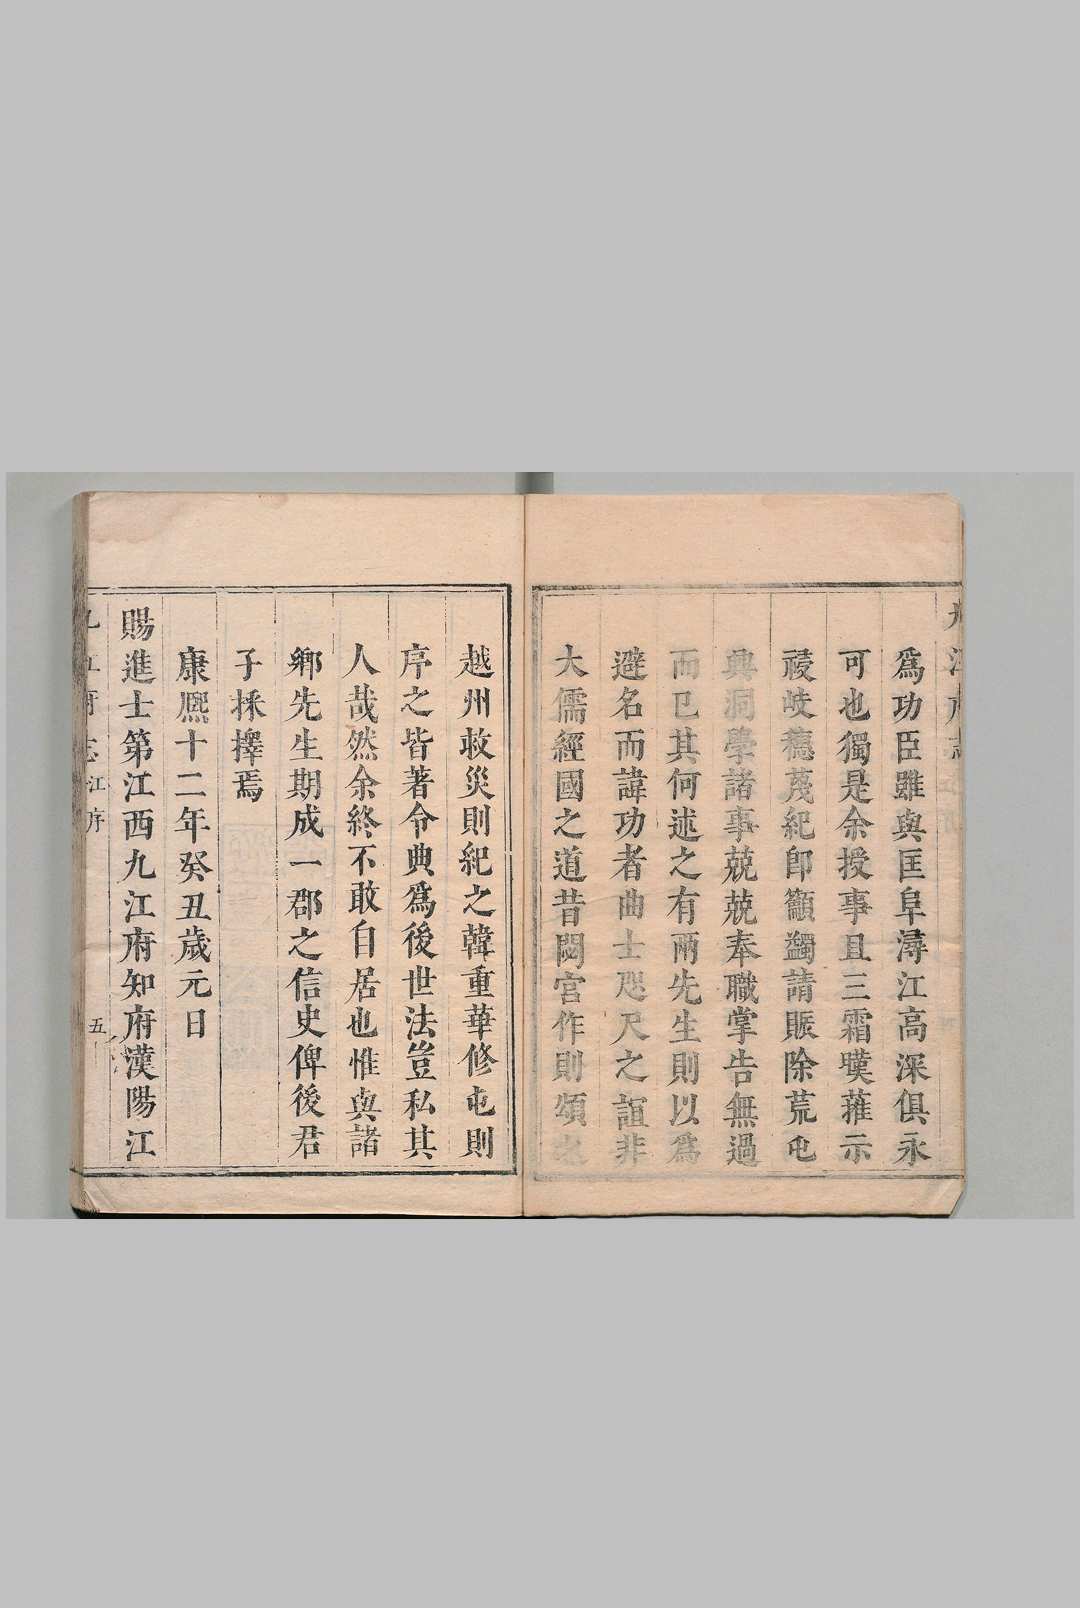 爲功臣雖與匡阜潯江高深俱永
可也獨是余授事且三霜嘆蓷示
祲歧穗蔑紀卽籲蠲請賑除荒屯
興洞學諸事兢兢奉職掌告無過
而已其何述之有兩先生則以爲
避名而諱功者曲士咫尺之誼非
大儒經國之道昔閟宮作則頌之
越州救災則紀之韓重華修屯則
序之皆著令典爲後世法豈私其
人哉然余終不敢自居也惟與諸
鄉先生期成一郡之信史俾後君
子採擇焉
康熙十二年癸丑歲元日
賜進士第江西九江府知府漢陽江
九江府志 江序 五